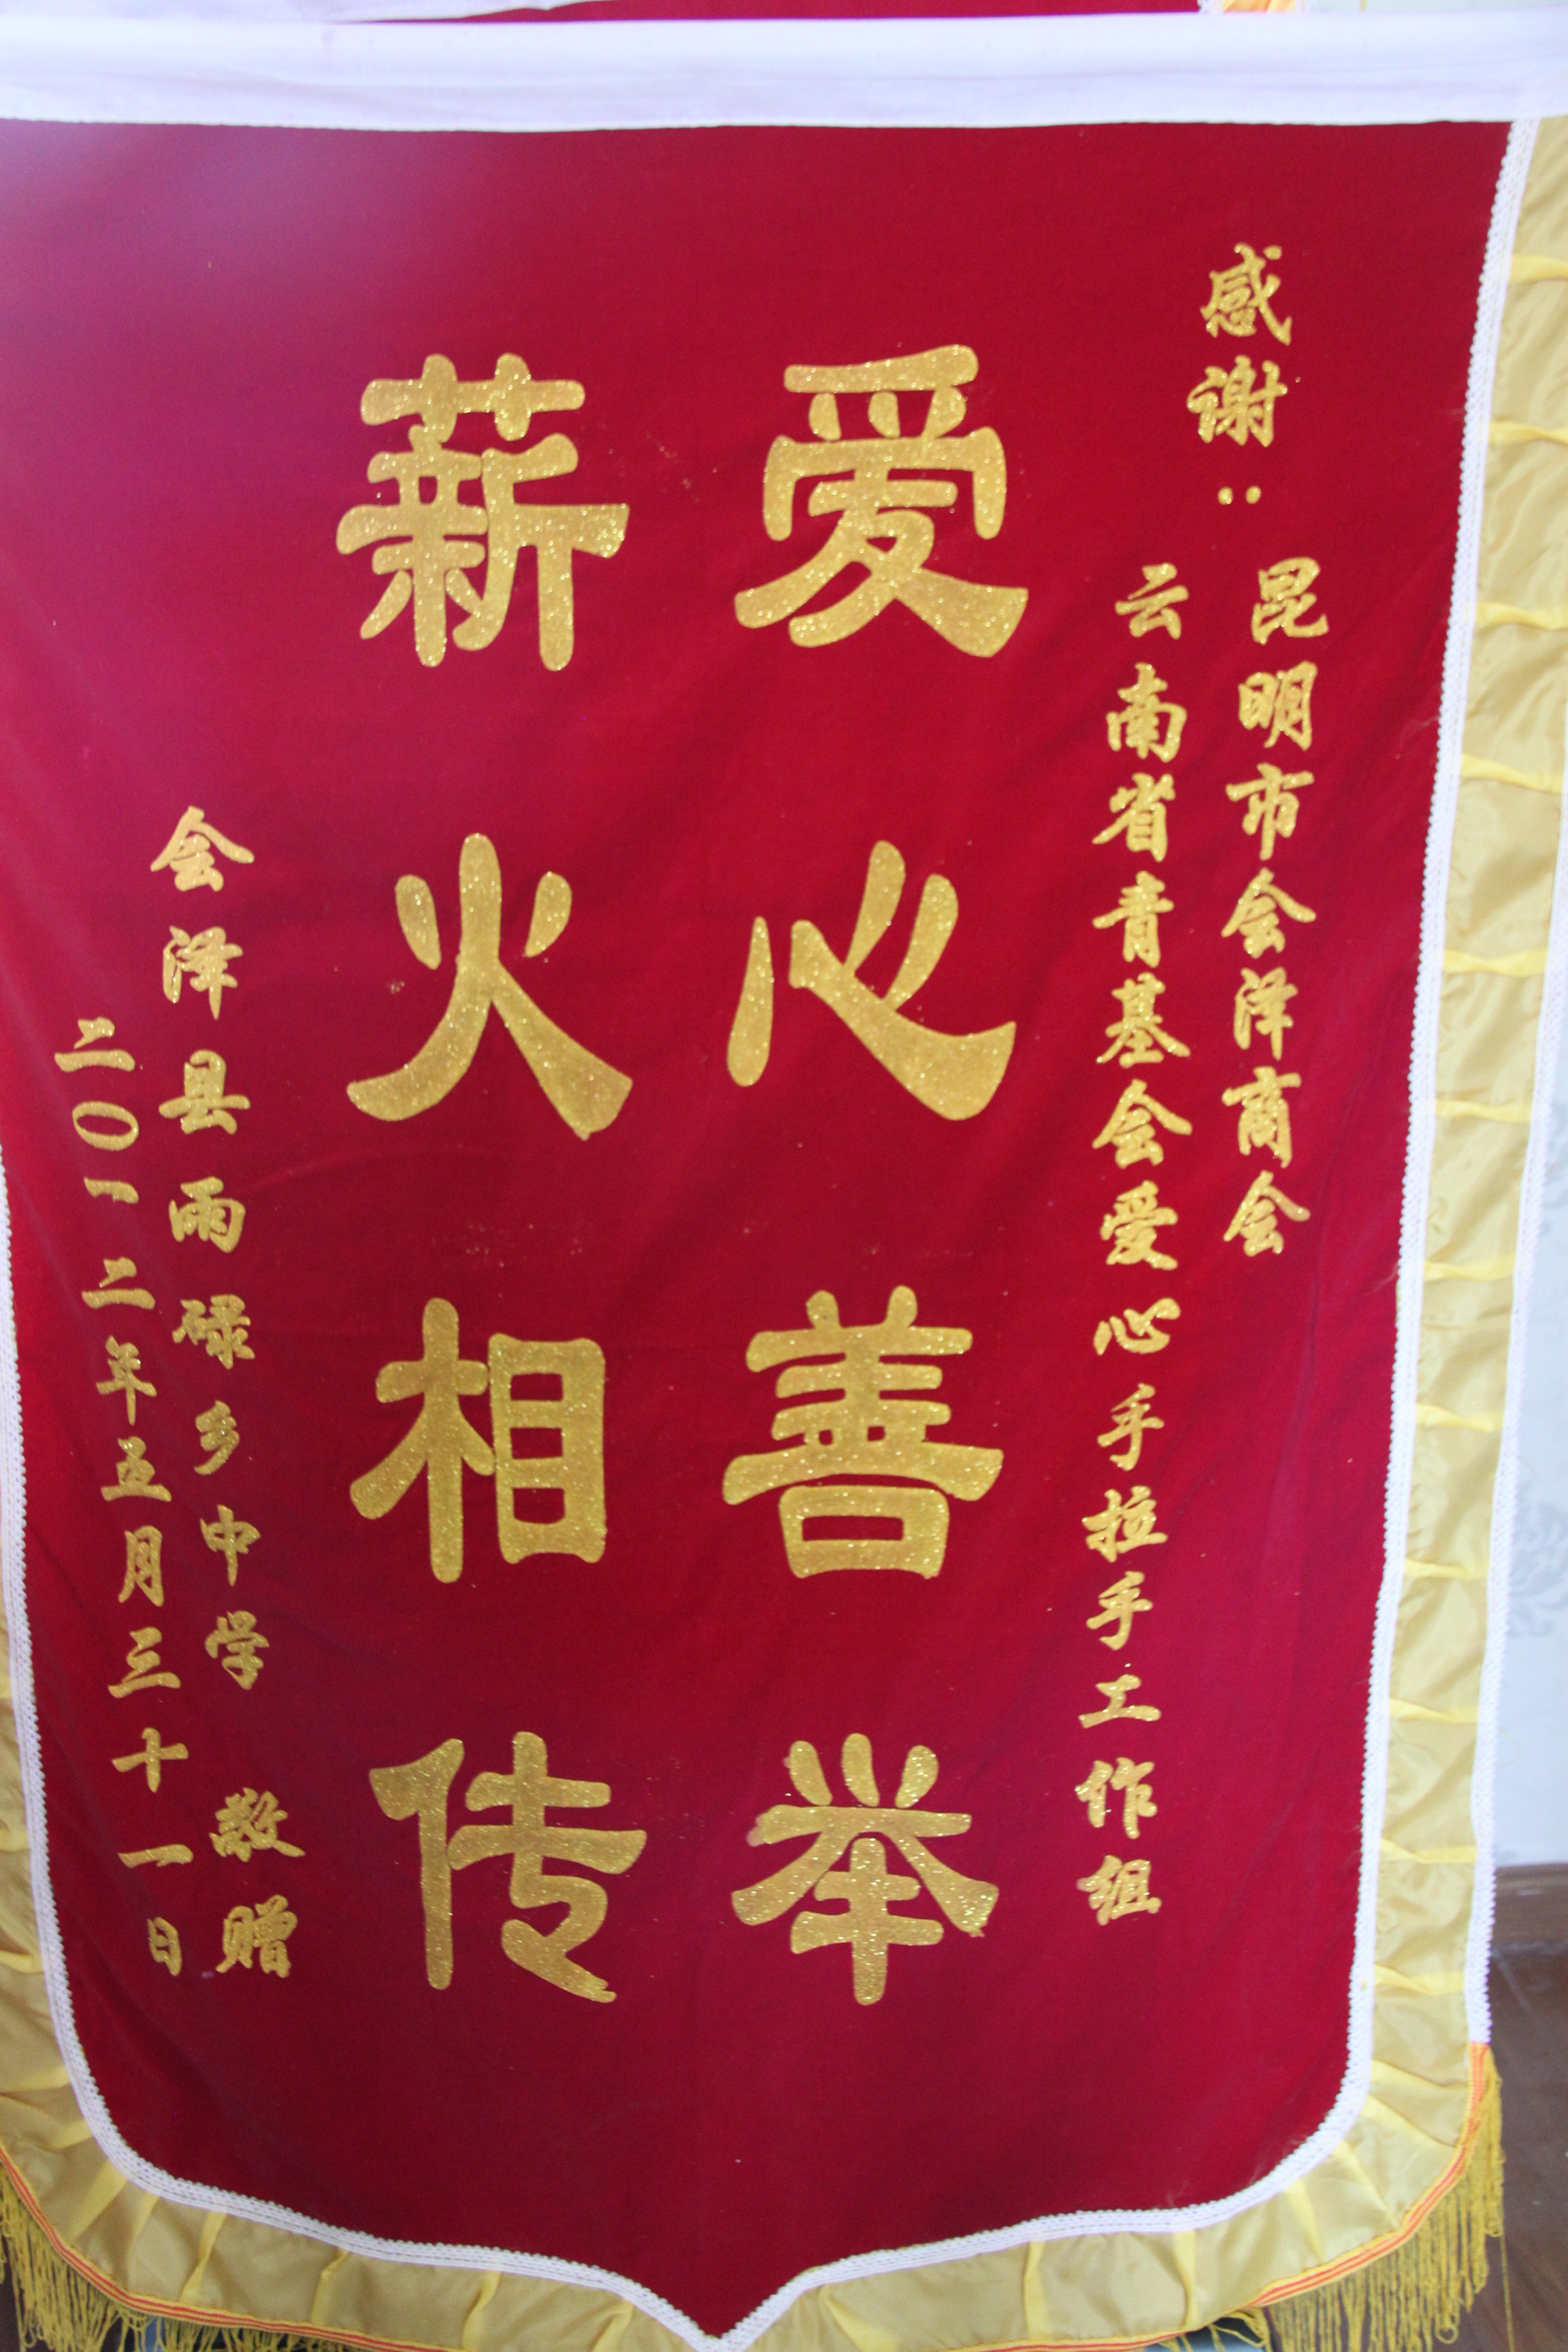 感谢：
昆明市会泽商会
云南省青基会爱心手拉手工作组
爱心善举
薪火相传
会泽县雨碌乡中学 敬赠
二〇一二年五月三十一日